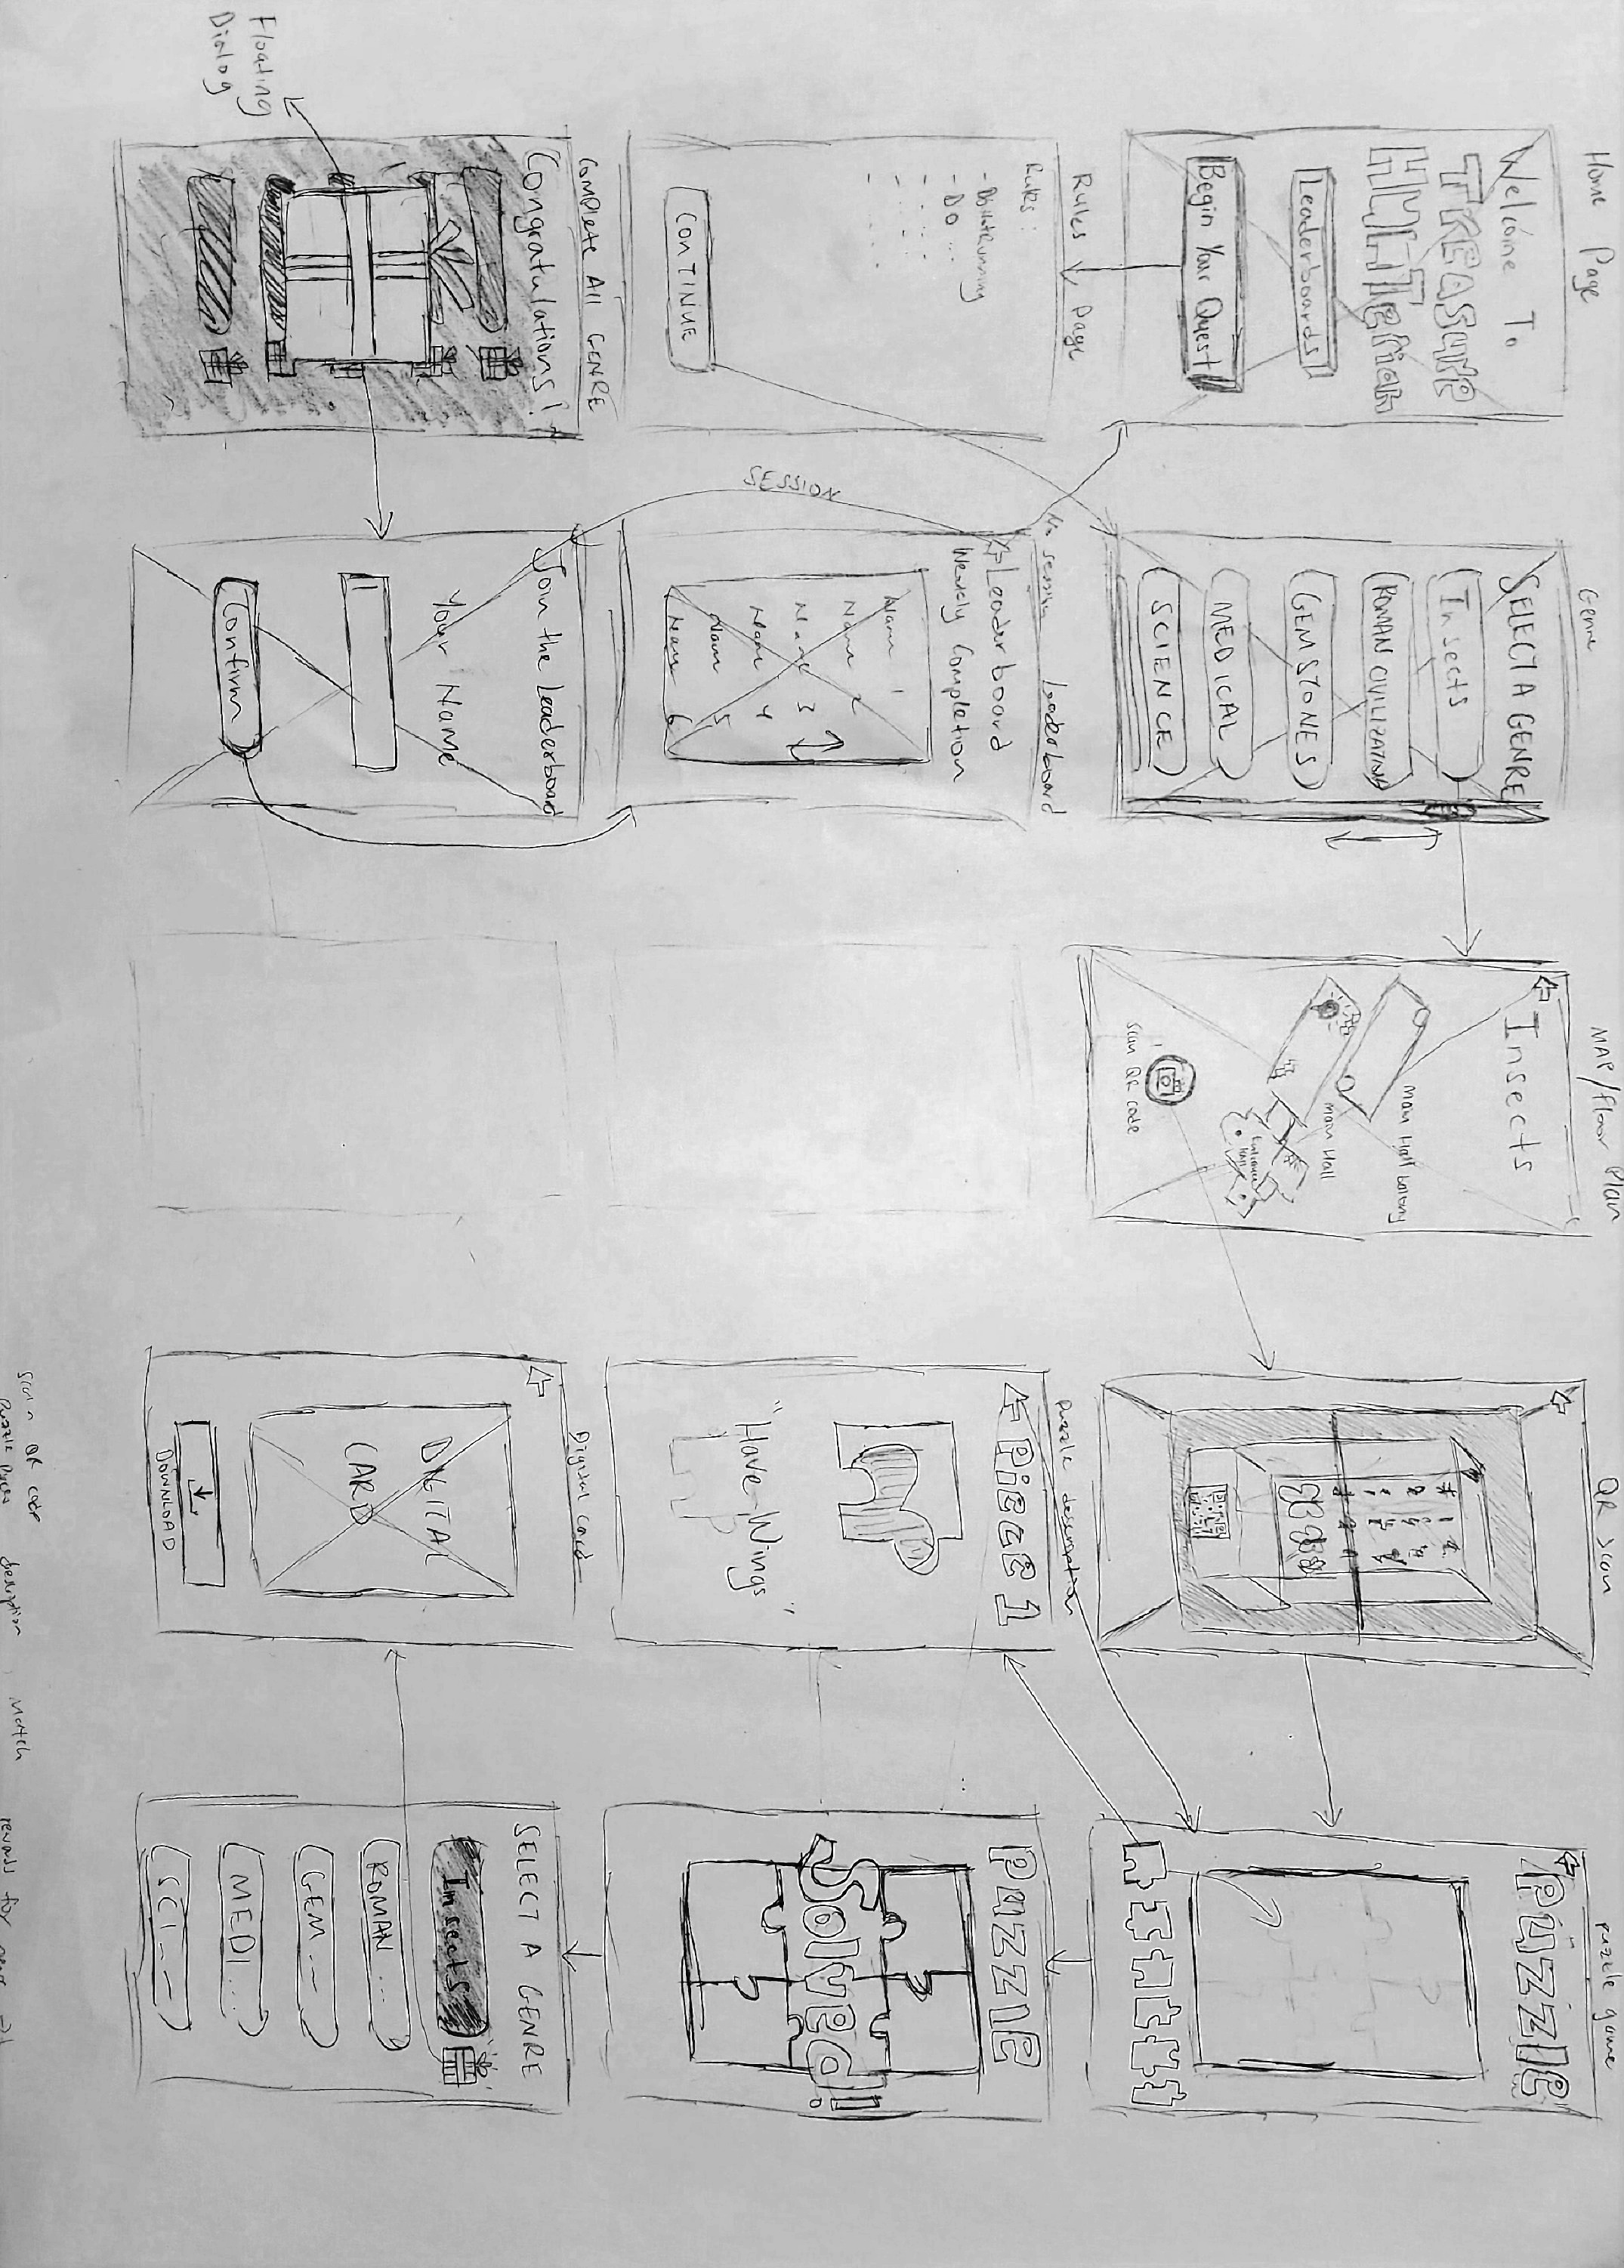 Home Page
Welcome To
TREASURE
HUNTerian
Leaderboards
Begin Your Quest
Genre
SELECT A GENRE
Insects
ROMAN CIVILIZATION
GEMSTONES
MEDICAL
SCIENCE
MAP/floor Plan
Insects
Main Hall
Main Hall
Entrance
Hall
Scan QR code
QR scan
puzzle game
PUZZlE
Rules Page
Rules :
- Do Not Running
- DO ...
CONTINUE
No session
Leaderboard
Leaderboard
Weekly Completion
Name 1
Name 2
Name 3
Name 4
Name 5
Name 6
SESSION
Puzzle description
Piece 1
"Have Wings"
PUZZLE
Solved!
COMPlete All GENRE
Congratulations!
Floating
Dialog
Join the Leaderboard
Your Name
Confirm
Digital Card
DIGITAL
CARD
DOWNLOAD
SELECT A GENRE
Insects
ROMAN ...
GEM ...
MEDI ...
SCI ...
Scan QR code
Puzzle Pieces description Match rewards for